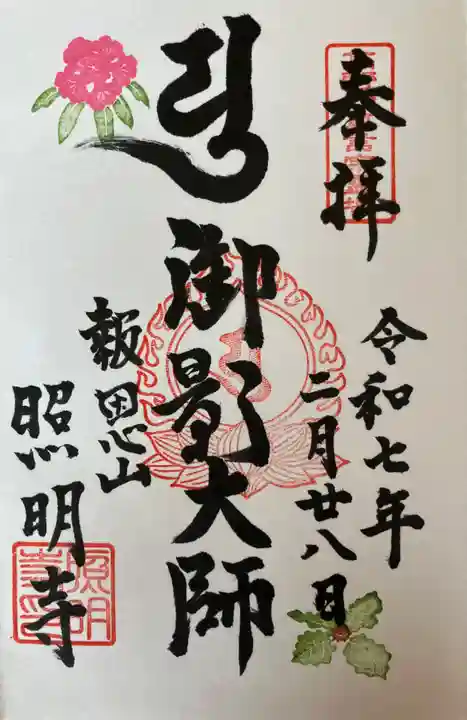 奉拝
令和七年
二月廿八日
御影大師
報恩山
照明寺
照明
寺印